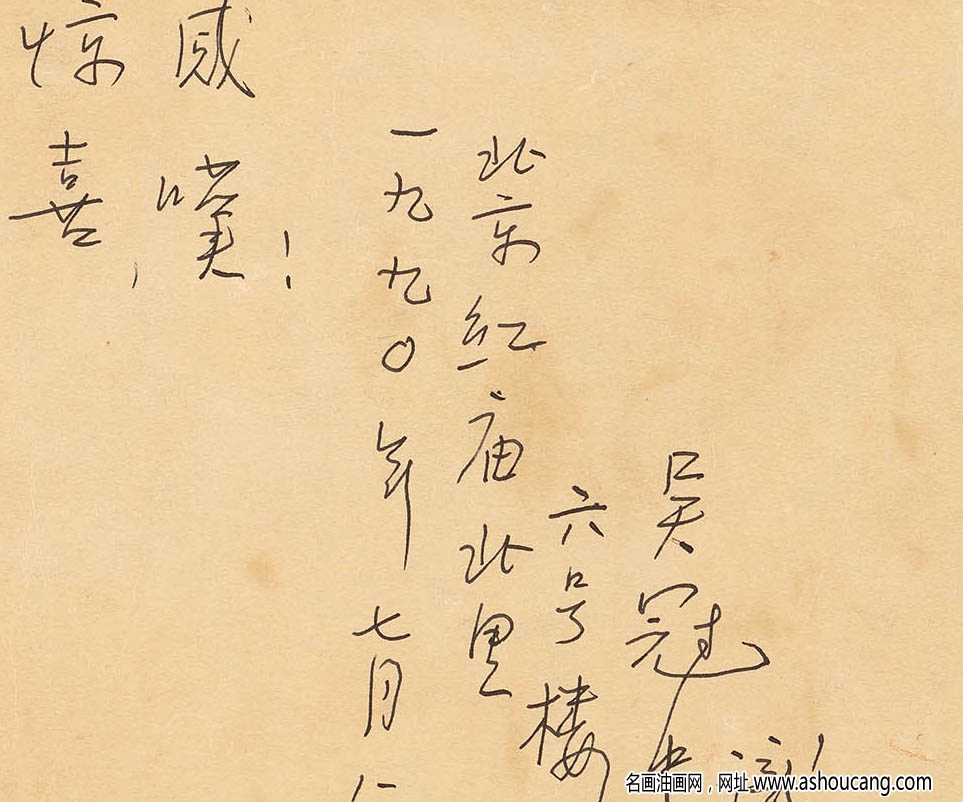 惊喜，
感嘆！
一九九〇年七月
北京紅庙北里
六号楼
吴冠中
名画油画网，网址 www.ashoucang.com